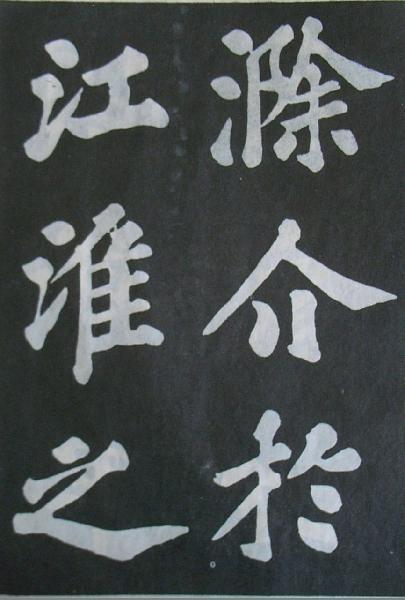 滁介於
江淮之